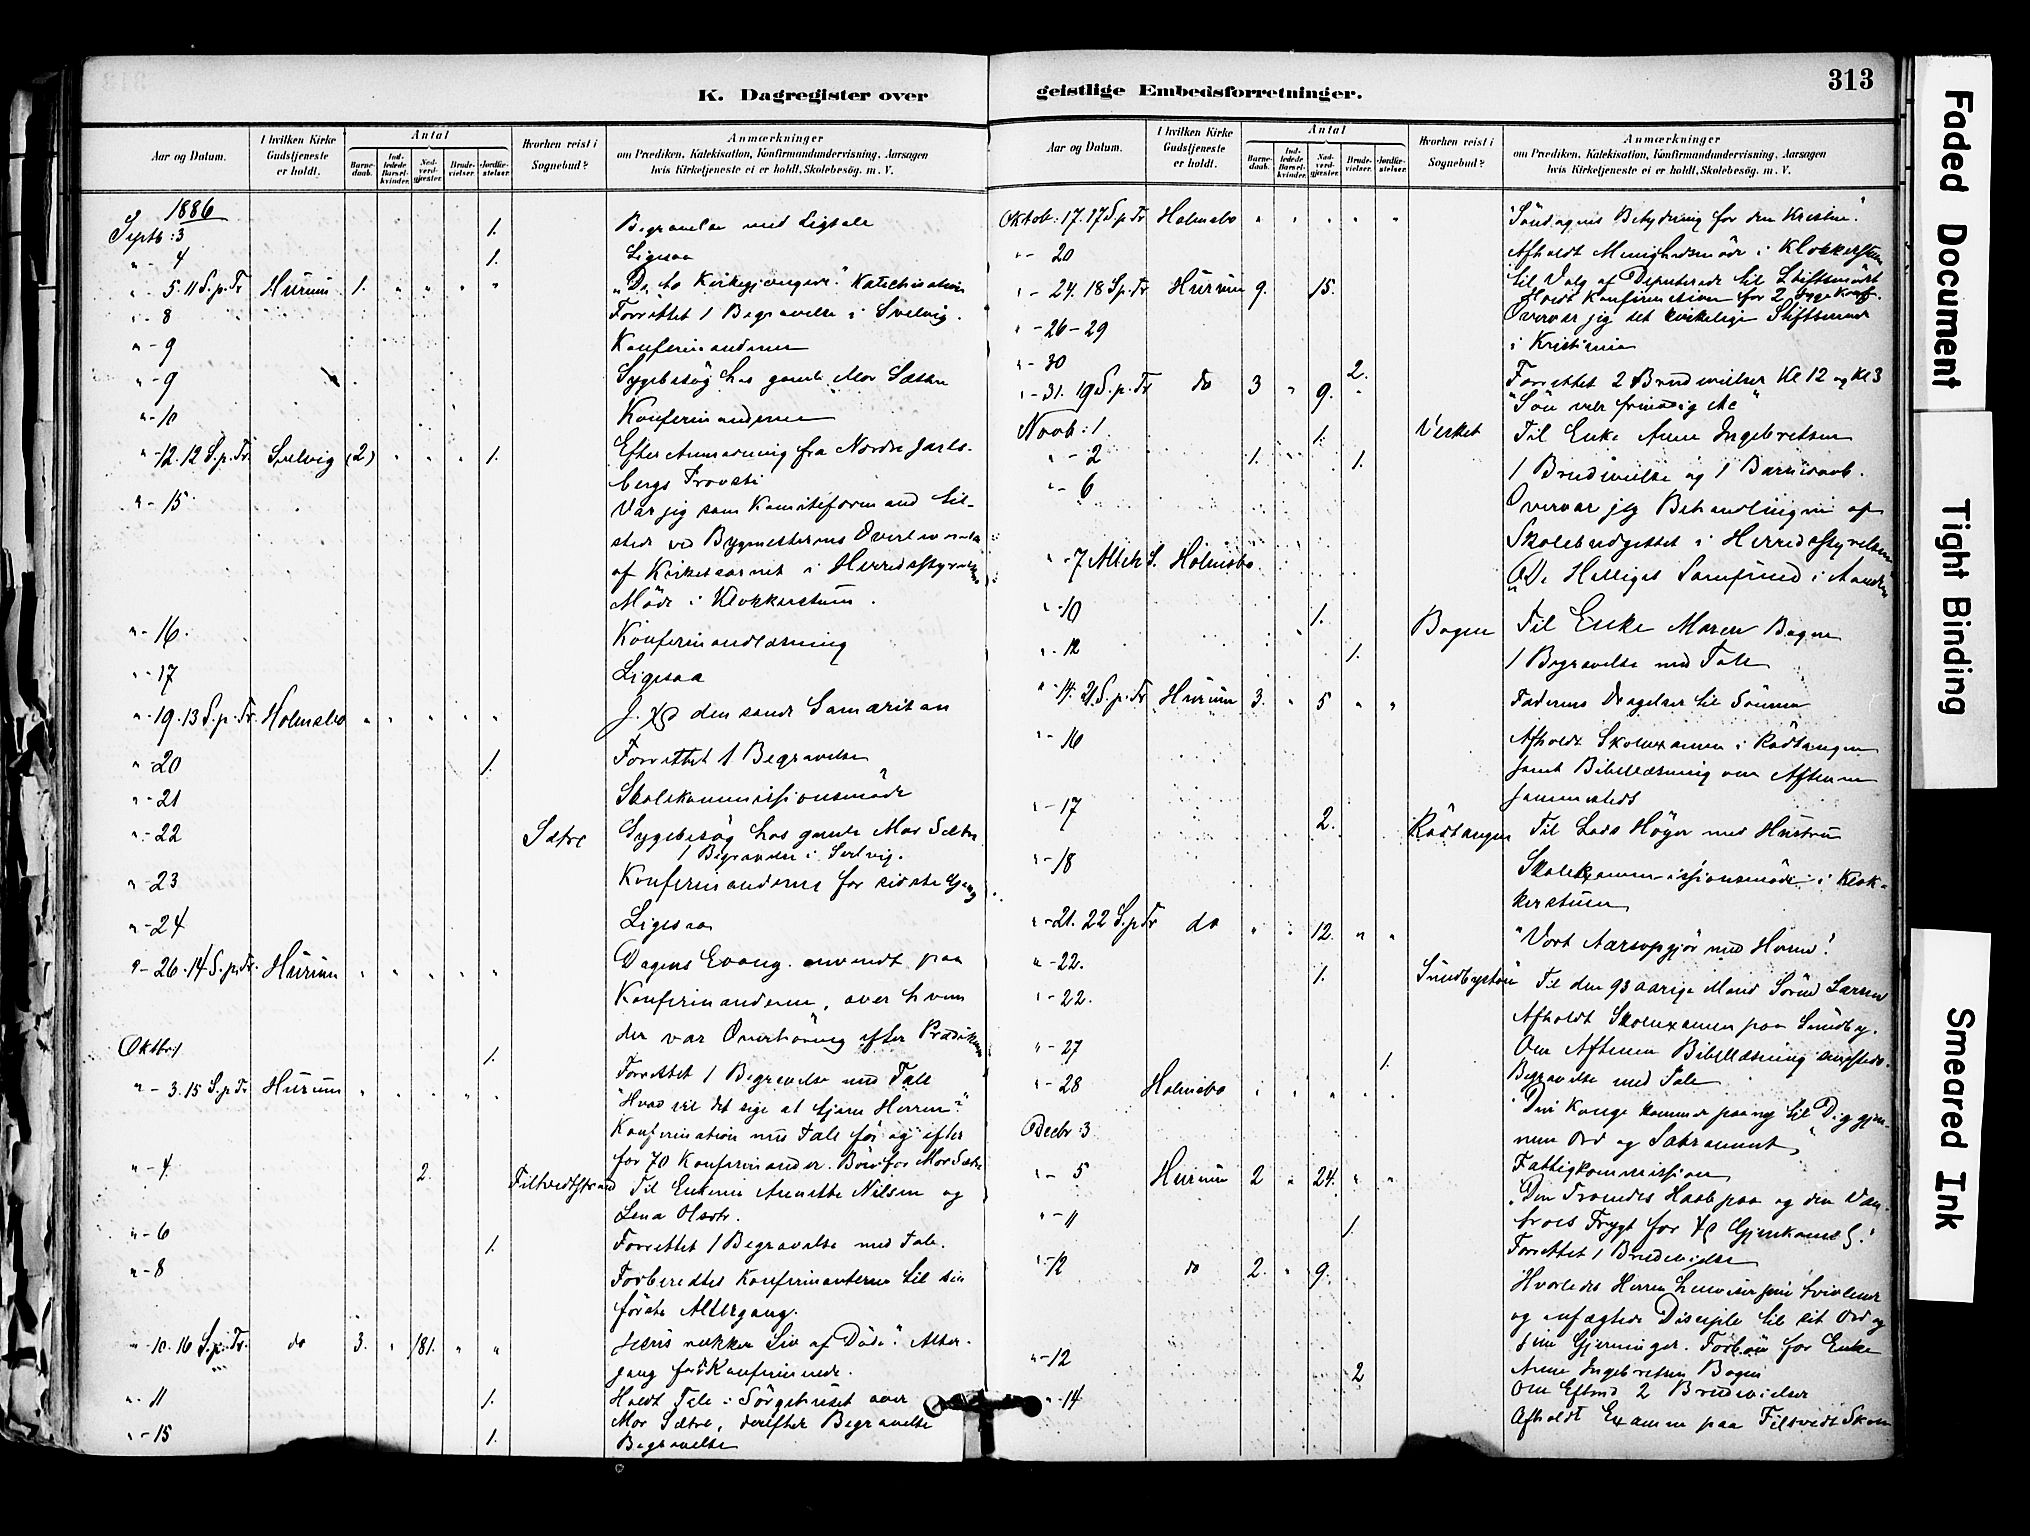 313
K. Dagregister over
geistlige Embedsforretninger.
Aar og Datum.
I hvilken Kirke Gudstjeneste er holdt.
Antal
Barne-daab.
Ind-ledede Barsel-kvinder.
Nad-verd-gjæster.
Brude-vielser.
Jordfæ-stelser.
Hvorhen reist i Sognebud?
Anmærkninger
om Prædiken, Katekisation, Konfirmandundervisning, Aarsagen
hvis Kirketjeneste ei er holdt, Skolebesög. m. V.
1886
Septb: 3 1. Begravelse med Ligtale
" - 4 1. Ligesaa
" - 5. 11 S. p. Tr Hurum 1. " " " " "De to Kirkegjængere." Katechisation
" - 8 Forrettet 1 Begravelse i Svelvig.
" - 9 Konfirmanderne
" - 9 Sygebesøg hos gamle Mor Sætre
" - 10 Konfirmanderne
" - 12. 12 S. p. Tr. Svelvig (2) " " " 1. Efter Anmodning fra Nordre Jarls-
bergs Provsti
" - 15 Var jeg som Komiteformand til-
stede ved Bygmesterens
af Kirketaarnet i Herredsstyrelsens
Møde i Klokkerstuen.
" - 16. Konfirmandlæsning
" - 17 Ligesaa
" - 19. 13 S. p. Tr. Holmsbo " " " " " den sande Samaritan
" - 20 1. Forrettet 1 Begravelse
" - 21 Skolekommissionsmøde
" - 22 Sætre Sygebesøg hos gamle Mor Sætre
1 Begravelse i Svelvig.
" - 23 Konfirmanderne for sidste Gang
" - 24 Ligesaa
" - 26. 14 S. p. Tr. Hurum " " " " " Dagens Evang. anvendt paa
Konfirmanderne, over hvem
der var Overhøring efter Prædiken
Oktbr 1 1. Forrettet 1 Begravelse med Tale
" - 3. 15 S. p Tr Hurum " " " " " "Hvad vil det sige at tjene Herren?"
Konfirmation med Tale før og efter
for 70 Konfirmander. Bøn for Mor Sætre
" - 4 2. Filtvedtstrand Til Enkerne Annette Nilsen og
Lena Olsdtr.
" - 6 1. Forrettet 1 Begravelse med Tale.
" - 8 Forberedtes Konfirmanterne til sin
første Altergang.
" - 10. 16 S. p. Tr. do 3. " 181. " " Jesus vækker Liv af Døde". Alter-
gang for Konfirmerede.
" - 11 1. Holdt Tale i Sørgehuset over
Mor Sætre, derefter Begravelse
" - 15 1. Begravelse
Oktob: 17. 17 S p Tr Holmsbo " " " " " "Søndagens Betydning for den Kristne".
" - 20 Afholdt Menighedsmøde i Klokkerstuen
til Valg af Deputerede til Stiftsmødet
" - 24. 18 Sp. Tr Hurum 9. 15. Holdt Konfirmation for 2 syge Konf.
" - 26 - 29 Overvar jeg det kirkelige Stiftsmøde
i Kristiania
" - 30 2. Forrettet 2 Brudevielser Kl 12 og Kl 3
" - 31. 19 S. p. Tr do 3 " 9. " "Søn vær frimodig etc"
Novb: 1 1. Verket Til Enke Anne Ingebretsen
" - 2 1. 1. 1 Brudevielse og 1 Barnedaab.
" - 6 Overvar jeg Behandlingen af
Skolebudgettet i Herredsstyrelsen
" - 7 Alleh S. Holmsbo "De Helliges Samfund i Aanden
" - 10 1. Bogen Til Enke Maren Bogen
" - 12 1. 1 Begravelse med Tale
" - 14. 21 S. p. Tr Hurum 3. " 5 " " Faderens Dragelser til Sønnen
" - 16 Afholdt Skoleexamen i Rødtangen
samt Bibellæsning om Aftenen
sammesteds
" - 17 2. Rödtangen Til Lods Høyer med Hustru
" - 18 Skolekommissionsmøde i Klok-
kerstuen
" - 21. 22 S. p Tr do " " 12. " " "Vort Aarsopgjør med Herren"!
" - 22. 1. Til den 93 aarige Mand Sørend Larsen
" - 22. Afholdt Skoleexamen paa Sundby.
Om Aftenen Bibellæsning samsteds.
" - 27 1. Begravelse med Tale
" - 28 Holmsbo " " " " " "Din Konge kommer paany til Dig gjen-
nem Ord og Sakrament"
Decbr: 3 Fattigkommission
" - 5 Hurum 2 " 24. " " "Den Troendes Haab paa og den Van-
troes Frygt for Gjenkomst"!
" - 11 1. Forrettet 1 Brudevielse
" - 12 do 2. " 9. Hvorledes Herren henviser sine tvivlende
og anfægtede Disciple til sit Ord og
sine Gjerninger. Forbøn for Enke
Anne Ingebretsen Bogen
" - 12 2 Om Eftmd 2 Brudevielser
" - 14 Afholdt Examen paa Filtvedt Skole
Faded Document
Tight Binding
Smeared Ink